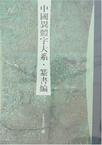 中國異體字大系·篆書編